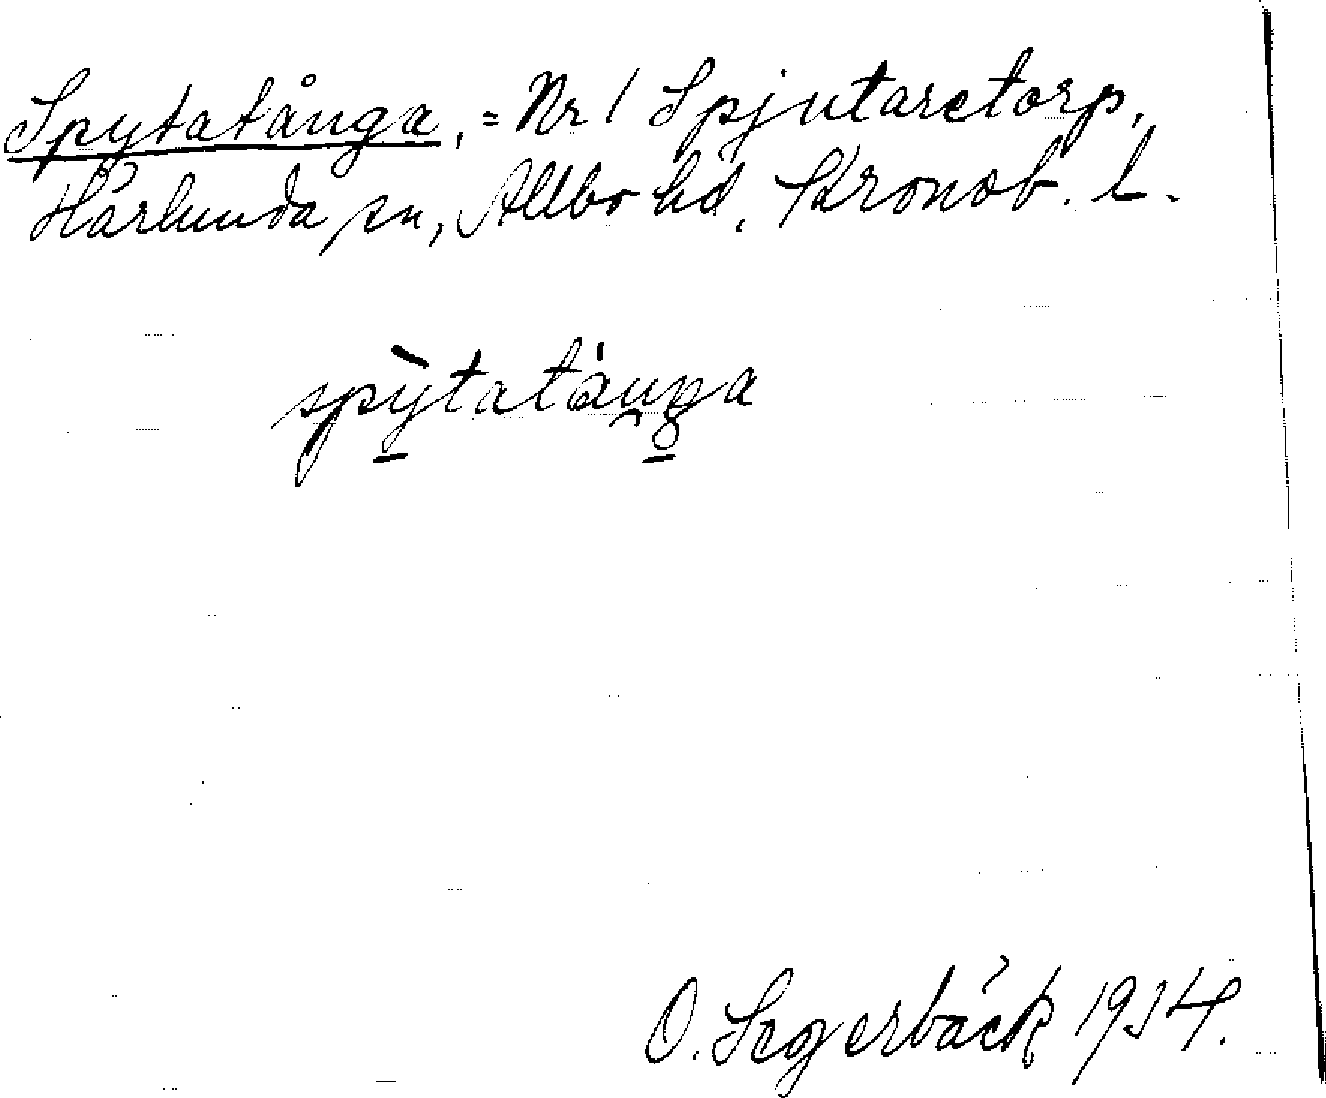 Spytatånga, = Nr 1 Spjutaretorp,
Härlunda sn, Allbo hd, Kronob. l.
spỳtatánga
O. Segerbäck 1934.